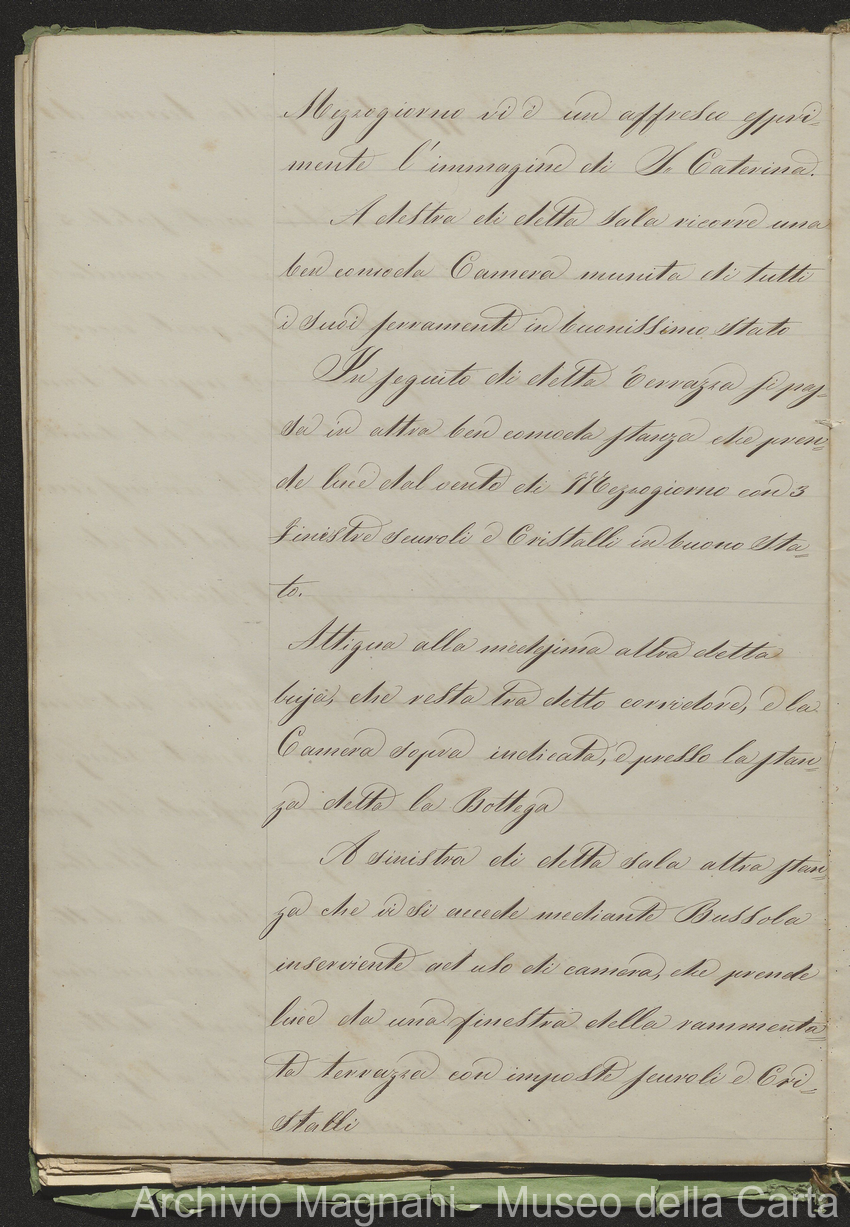 Mezzogiorno vi è un affresco espri=
mente l'immagine di S. Caterina.
A destra di detta sala ricorre una
ben comoda Camera munita di tutti
i suoi serramenti in buonissimo stato
In seguito di detta Terrazza si pas=
sa in altra ben comoda stanza che pren=
de luce dal vento di Mezzogiorno con 3
finestre scuroli e Cristalli in buono sta=
to.
Attigua alla medesima altra detta
buja, che resta tra detto corridore, e la
Camera sopra indicata, e presso la stan=
za detta la Bottega
A sinistra di detta sala altra stan=
za che vi si accede mediante Bussola
inserviente ad uso di camera, che prende
luce da una finestra della rammenta=
ta terrazza con imposte scuroli e Cri=
stalli
Archivio Magnani - Museo della Carta